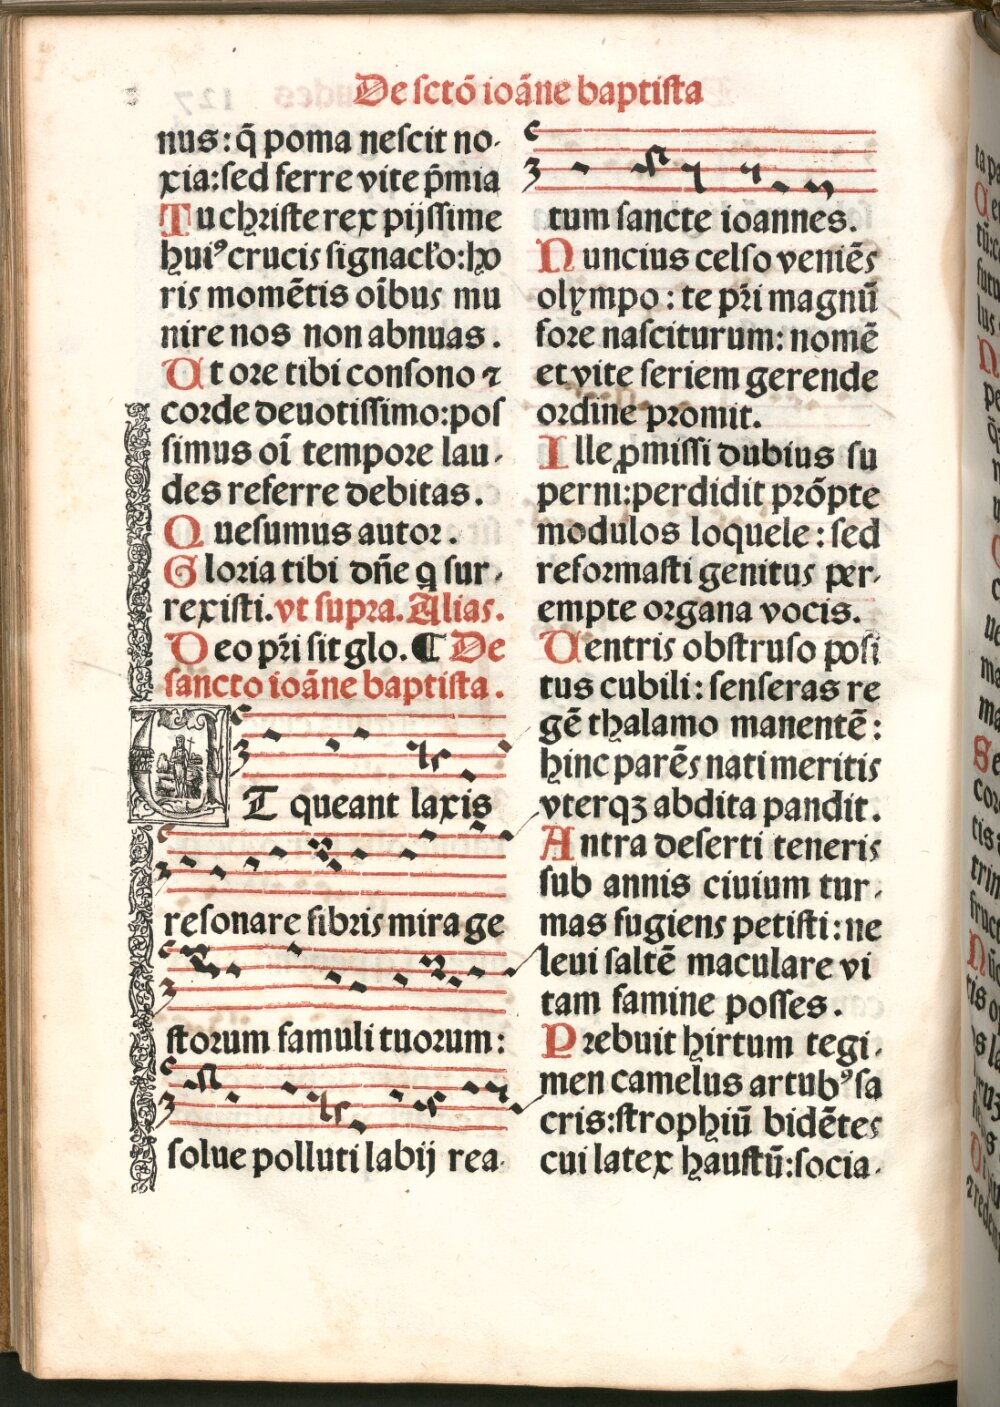 De sctõ ioãne baptista
nus: q̃ poma nescit no-
xia: sed ferre vite p̃mia
Tu christe rex pijssime
huiꝰ crucis signacło: ho
ris momẽtis oĩbus mu
nire nos non abnuas.
Ut ore tibi consono ⁊
corde deuotissimo: pos
simus oĩ tempore lau-
des referre debitas.
Quesumus autor.
Gloria tibi dñe q̣ sur-
rexisti. vt supra. Alias.
Deo pr̃i sit glo. ¶ De
sancto ioãne baptista.
UT queant laxis
resonare fibris mira ge
storum famuli tuorum:
solue polluti labij rea-
tum sancte ioannes.
Nuncius celso veniẽs
olympo: te pr̃i magnũ
fore nasciturum: nomẽ
et vite seriem gerende
ordine promit.
Ille ꝓmissi dubius su
perni: perdidit prõpte
modulos loquele: sed
reformasti genitus per-
empte organa vocis.
Uentris obstruso posi
tus cubili: senseras re
gẽ thalamo manentẽ:
hinc parẽs nati meritis
vterqꝫ abdita pandit.
Antra deserti teneris
sub annis ciuium tur-
mas fugiens petisti: ne
leui saltẽ maculare vi
tam famine posses.
Prebuit hirtum tegi-
men camelus artubꝰ sa
cris: strophiũ bidẽtes
cui latex haustũ: socia-